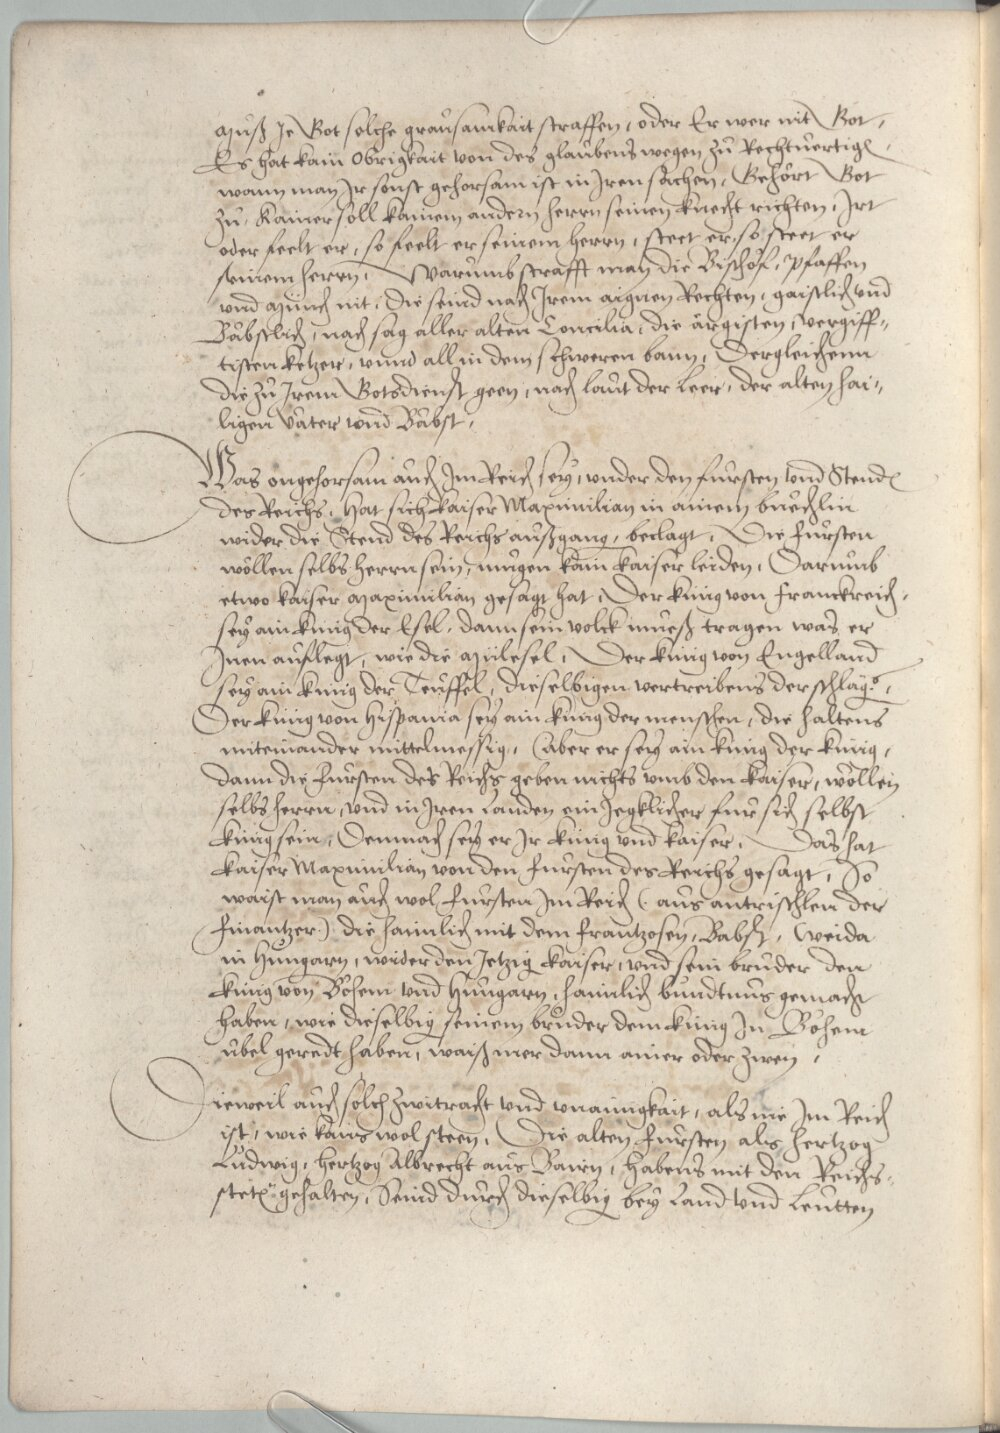 Muß Je Got solche grausamkait straffen, oder Er wer nit Got,
Es hat kain Obrigkait von des glaubens wegen zu Rechtuertigē,
wann man Jr sonst gehorsam ist in Jren sachen, Gehört Got
zu, Kainer soll kainem andern herrn seinen knecht richten, Irt
oder feelt er, so feelt er seinem herrn, steet er, so steet er
seinem herrn, Warumb strafft man die Bischof, Pfaffen
vnd Münch nit, die seind nach Jrem aignen Rechten, gaistlich vnd
Bäbstlich, nach sag aller alten Concilia, die ärgisten, vergiff-
tisten ketzer, vnnd all in dem schweren bann, Dergleichenn
die zu Jrem Gotsdienst geen, nach laut der Leer, der alten hai-
ligen Väter vnd Bäbst,
Was ongehorsam auch Im Reich sey, vnder den fürsten vnd Stendē
des Reichs, hat sich kaiser Maximilian in ainem buechlin
wider die Stend des Reichs außgang, beclagt, Die fürsten
wöllen selbs herrn sein, mügen kain kaiser leiden, Darumb
etwo kaiser Maximilian gesagt hat, Der künig von Franckreich,
sey ain künig der Esel, dann sein volck mueß tragen was er
Jnen auflegt, wie die Mülesel, Der künig von Engelland
sey ain künig der Teuffel, dieselbigen vertreibens der schläg,
Der künig von Hispania sey ain künig der menschen, die haltens
miteinander mittelmessig, Aber er sey ain künig der künig,
dann die fürsten des Reichs geben nichts vmb den kaiser, wöllen
selbs herrn, vnd in Jren Landen ein Jegklicher für sich selbst
künig sein, Demnach sey er Jr künig vnd kaiser, Das hat
kaiser Maximilian von den fürsten des Reichs gesagt, So
waist man auch wol fürsten Im Reich (aus antrischlen der
finantzer) die haimlich mit dem frantzosen, Babst, Weida
in Hungarn, wider den Jetzig kaiser, vnd sein bruder den
künig von Böhem vnd Hungarn, haimlich bundtnus gemacht
haben, wie dieselbig seinem bruder dem künig In Böhem
übel geredt haben, waiß mer dann ainer oder zwen,
Dieweil auch solch zwitracht vnd vnainigkait, als nie Im Reich
ist, wie kans wol steen, Die alten fürsten als hertzog
Ludwig, hertzog Albrecht aus Bairn, habens mit den Reichs-
stetē gehalten, Seind durch dieselbig bey Land vnd Leutten